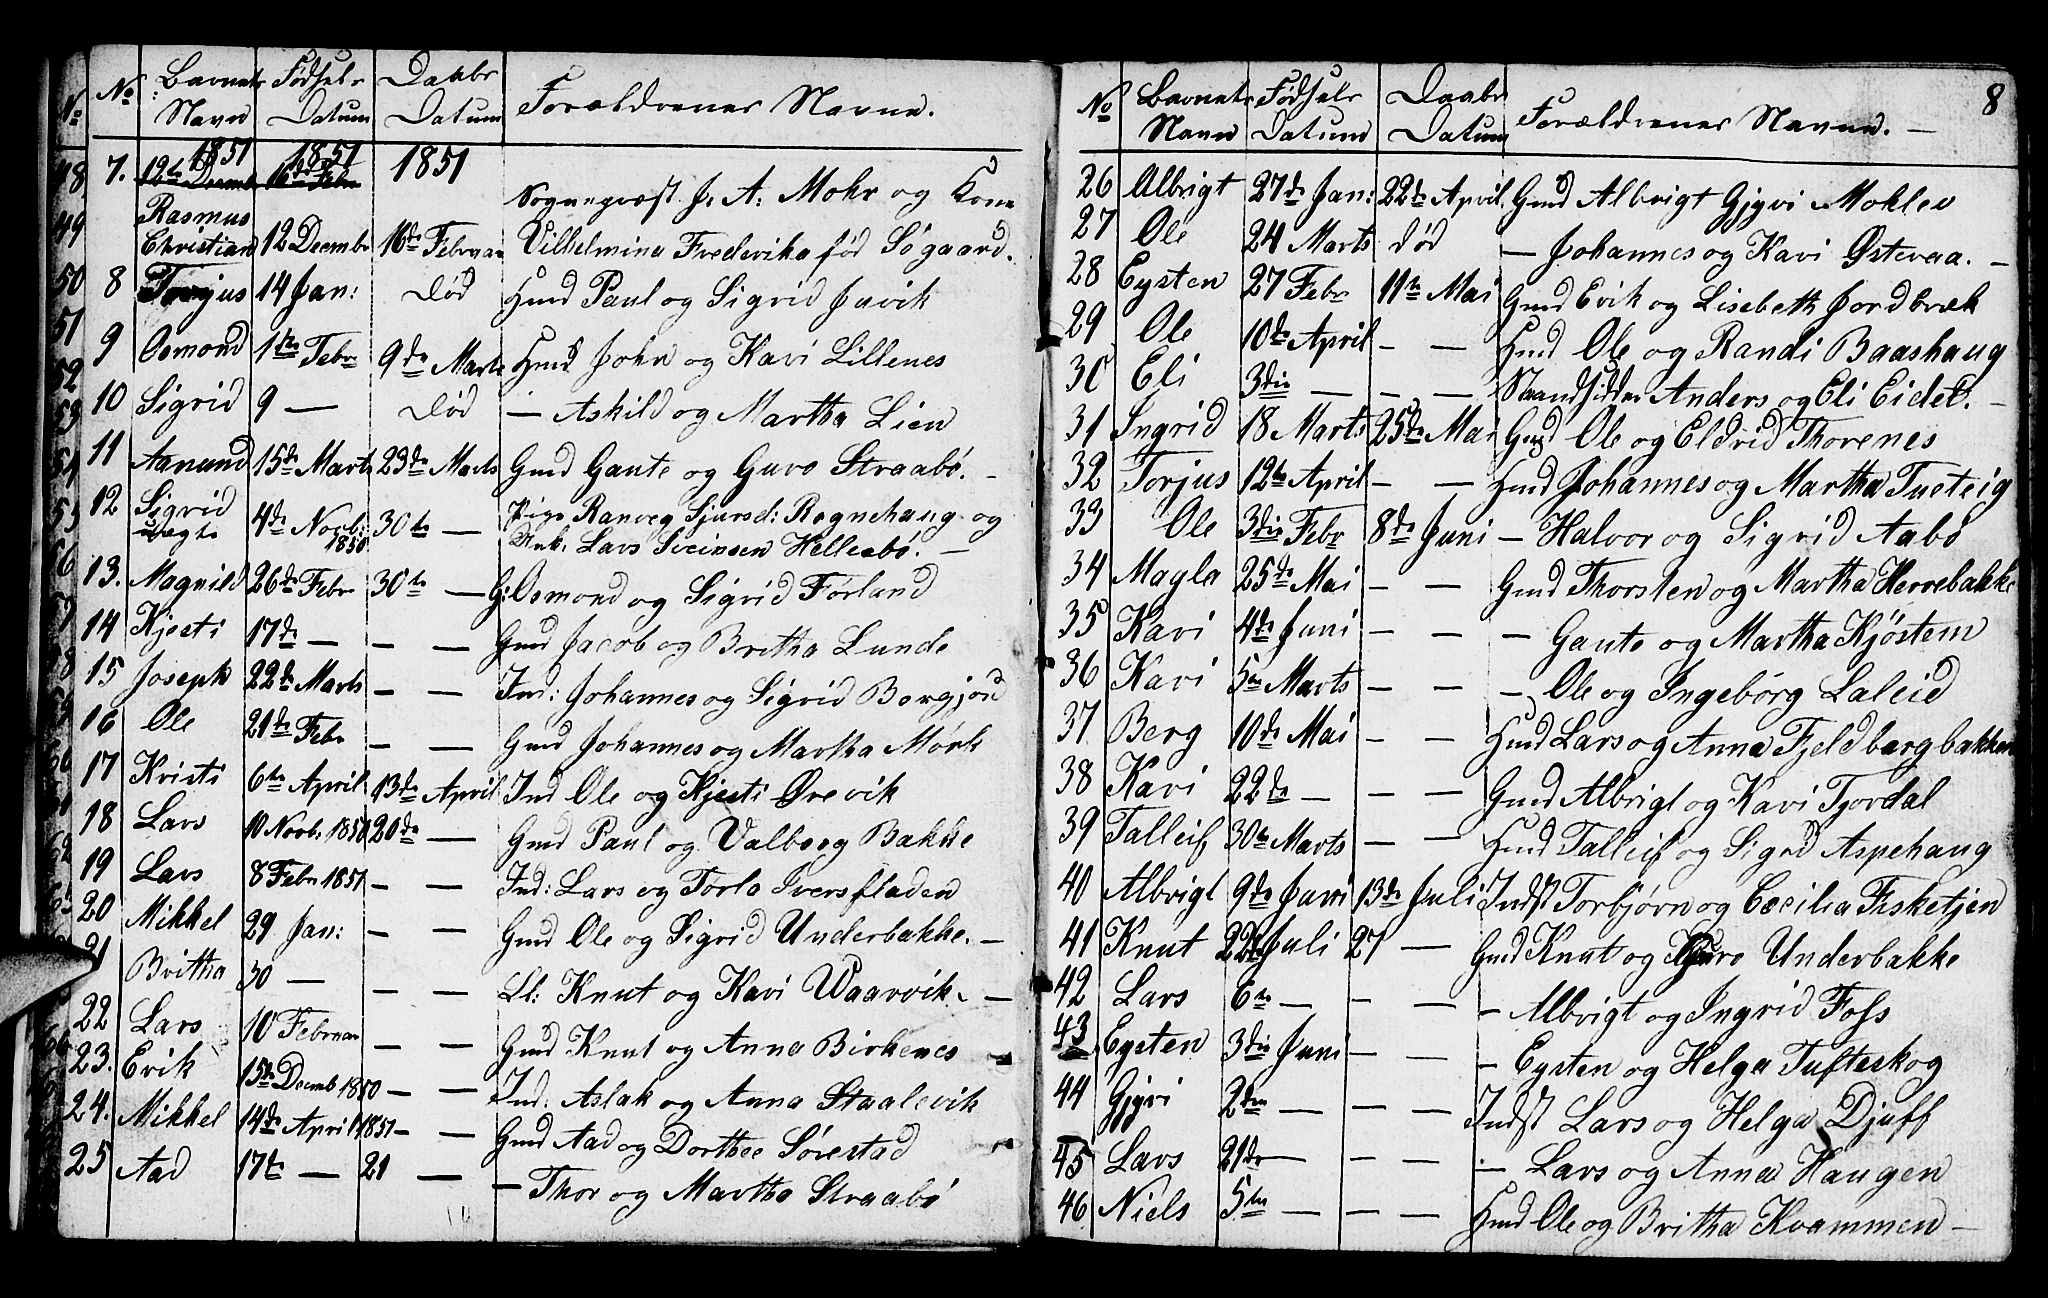 No Barnets Navn Fødsels Datum Daabs Datum Forældrenes Navne.
1851 1851 1851
7. 12te Decemb 16de Febr Sognepræst J. A. Mohr og Kone
Rasmus Christian 12 Decembr 16de Februar Vilhelmina Frederika fød Søgaard.
8 Torjus 14 Jan: død Hmd Paul og Sigrid Juvik
9 Osmond 1ste Febr 9de Marts Hmd John og Kari Lillenes
10 Sigrid 9 — død — Askild og Martha Lien
11 Aanund 15de Marts 23de Marts Gmd Gaute og Guro Straabø. —
12 Sigrid uægte 4de Novb: 1850 30te — Pige Ranveg Sjursd: Rognehaug og
Unk. Lars Sveinsen Helleabø. —
13. Magnild 26de Febr 30te — G: Osmond og Sigrid Førland
14 Kjesti 17de — — — Gmd Jacob og Britha Lunde
15 Joseph 22de Marts — — Ind: Johannes og Sigrid Borgjord
16 Ole 21de Febr — — Gmd Johannes og Martha Mørk
17 Kristi 6te April 13de April Ind Ole og Kjesti Ørevik
18 Lars 10 Novb: 1850 20de — Gmd Paul og Valborg Bakke
19 Lars 8 Febr 1851 — — Ind: Lars og Torlo Iversfladen
20 Mikkel 29 Jan: — — Gmd Ole og Sigrid Underbakke. —
21 Britha 30 — — — Ll: Knut og Kari Waarvik. —
22 Lars 10 Februar — — Gmd Knut og Anna Birkenes
23. Erik 15de Decemb 1850 — — Ind: Aslak og Anna Staalevik
24. Mikkel 14de April 1851 — — Gmd Aad og Dorthee Sørestad
25 Aad 17de — 21 — — Thor og Martha Straabø
8
No Barnets Navn Fødsels Datum Daabs Datum Forældrenes Navne. —
26 Albrigt 27de Jan: 22de April Gmd Albrigt Gjyri Moklev
27 Ole 24 Marts død — Johannes og Kari Østeraa. —
28 Eysten 27 Febr 11te Mai Gmd Erik og Lisebeth Jordbræk
29 Ole 10de April — — Hmd Ole og Randi Baashaug
30 Eli 3die — — — Strandsidder Anders og Eli Eidet. —
31 Ingrid 18 Marts 25de Mai Gmd Ole og Eldrid Thorenes
32 Torjus 12te April — — Hmd Johannes og Martha Tveteig
33 Ole 3die Febr 8de Juni — Halvor og Sigrid Aabø
34 Magla 25de Mai — — Gmd Thorsten og Martha Herrebakke
35 Kari 4de Juni — — — Gaute og Martha Kjøstem
36 Kari 5te Marts — — — Ole og Ingebørg Laleid
37 Berg 10de Mai — — Hmd Lars og Anna Fjeldbergbakken
38 Kari 22de — — — Gmd Albrigt og Kari Tjordal
39 Talleif 30te Marts — — Hmd Talleif og Sigrid Aspehaug
40 Albrigt 9de Juni 13de Juli Indst Torbjørn og Cecilia Fisketjen
41 Knut 22de Juli 27 — Gmd Knut og Guro Underbakke
42 Lars 6te — — — — Albrigt og Ingrid Foss
43 Eysten 3die Juni — — — Eysten og Helga Tufteskog
44 Gjyri 2den — — — Indst Lars og Helga Djuff
45 Lars 21de — — — — Lars og Anna Haugen
46 Niels 5te — — — Hmd Ole og Britha Kvammen —